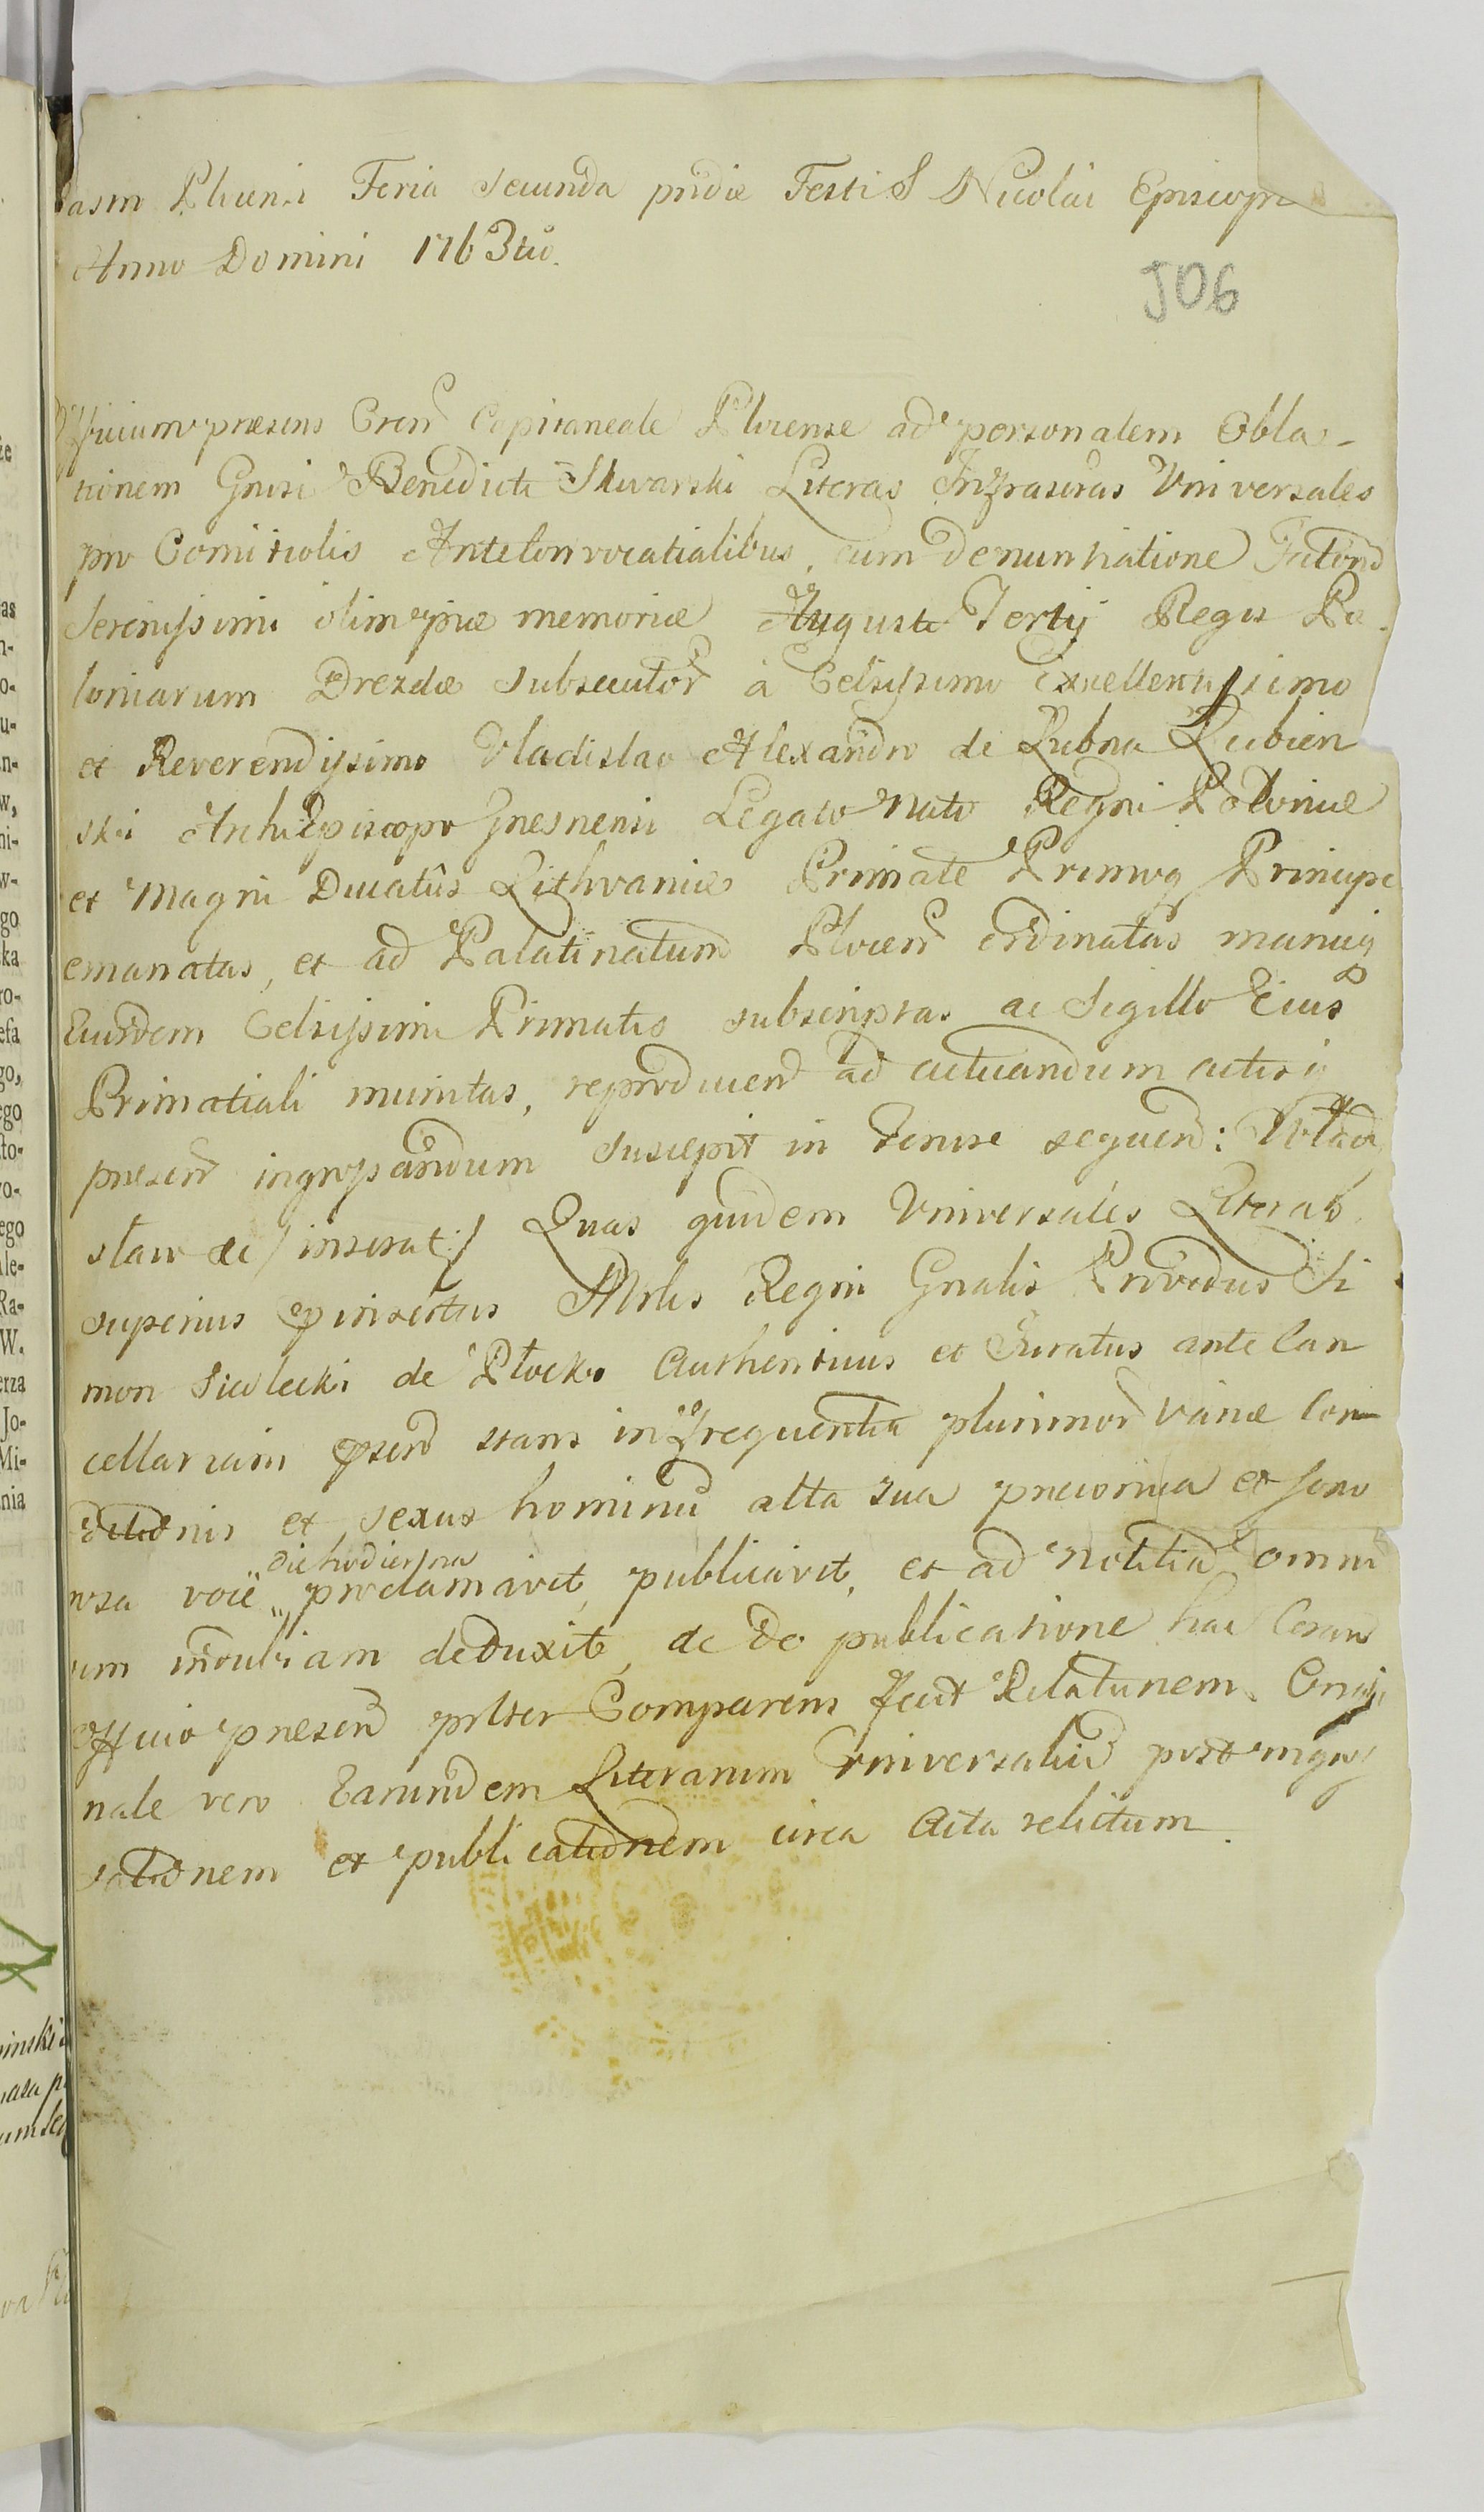 Plocensi Feria Secunda pridie Festi S Nicolai Episcopi
Anno Domini 1763tio.
J06
Officium præsens Cren Capitaneale Plocense ad personalem Obla-
tionem Gnrsi Benedicti Skwarski Literas Infrascras Universales
pro Comitiolis AnteConvocatialibus, cum denuntiatione Fatord
Serenissimi olim piæ memoriæ Augusti Tertij Regis Po
loniarum Drezdæ subsecutor à Celsissimo Excellentissimo
et Reverendissimo Vladislao Alexandro de Lubna Lubien
ski Archi Episcopo Gnesnensi Legato Nato Regni Poloniæ
et Magni Ducatûs Lithvaniæ Primate Primoq Principe
emanatas, et ad Palatinatum Plocen ordinatas manuq
Eiusdem Celsissimi Primatis subscriptas ac Sigillo Eius
Primatiali munitas, reproducen ad actuandum actisq
præsen ingrossandum suscepit in tenore sequen: Wlady
slaw &c /inserat:/ Quas quidem Universales Literas
superius insertas Mrlis Regni Gnalis Providus Si
mon Siedlecki de Plocko Authenticus et Juratus ante Can
cellariam psen stans in frequentia plurimor variæ Con
ditionis et sexus hominu alta sua præconica et sono
rosa voce „ die hodierna proclamavit, publicavit, et ad notitia omni
um indubiam deduxit, de do publicatione hac Coram
Officio præsen prlter Comparens fecit Relationem. Origi
nale vero Earundem Literarum Universaliu post ingros
sationem et publicationem circa Acta relictum.
as
go
ka
efa
go,
ego
to-
ego
Ra-
W.
erza
Jo-
Mi-
nia